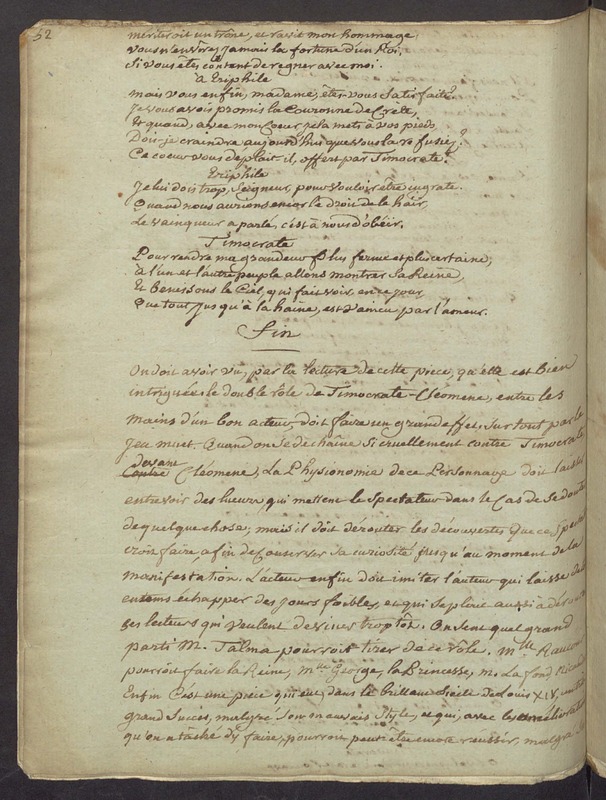 52
mériteroit un trône, et ravit mon hommage,
vous n'enviréz jamais la fortune d'un Roi,
Si vous êtes content de regner avec moi.
à Eriphile
mais vous enfin, madame, êtes-vous Satisfaite?
Je vous avois promis la Couronne de Crete,
Et quand, avec mon Coeur je la mets à vos pieds,
Dois-je craindre aujourd'hui que vous la refusiez?
Ce coeur vous déplait-il, offert par Timocrate?
Eriphile
Je lui dois trop, Seigneur, pour vouloir être ingrate.
Quand nous aurions encor le droit de le haïr,
Le vainqueur a parlé, c'est à nous d'obéir.
Timocrate
Pour rendre ma grandeur plus ferme et plus certaine,
à l'un et l'autre peuple allons montrer Sa Reine,
Et benissons le Ciel, qui fait voir, en ce jour,
Que tout, jusqu'à la haine, est vaincu par l'amour.
Fin
On doit avoir vu, par la lecture de cette piece, qu'elle est bien
intriguée. le double rôle de Timocrate-Cléomene, entre les
mains d'un bon acteur, doit faire un grand effet, Sur tout par le
jeu muet. Quand on Se déchaîne Si cruellement contre Timocrate
devant
Contre Cléomene, La Physionomie de ce Personnage doit laisser
entrevoir des lueurs qui mettent le Spectateur dans le Cas de Se douter
de quelque chose; mais il doit dérouter les découvertes que ce
croit faire, afin de Conserver Sa curiosité jusqu'au moment de la
manifestation. L'acteur enfin doit imiter l'auteur qui laisse de
tems échapper des jours foibles, et qui Se plait aussi à
ses lecteurs qui veulent deviner trop tôt. On sent quel grand
parti M. Talma pourroit tirer de ce rôle. Mlle Raucour
pourroit faire la Reine, Mlle George, la Princesse, M. Lafond
Enfin C'est une piece qui eut, dans le brillant Siecle de Louis XIV, un
grand Succès, malgré Son mauvais Style, et qui, avec les
qu'on a tâché d'y faire, pourroit peut être encore réussir, malgré